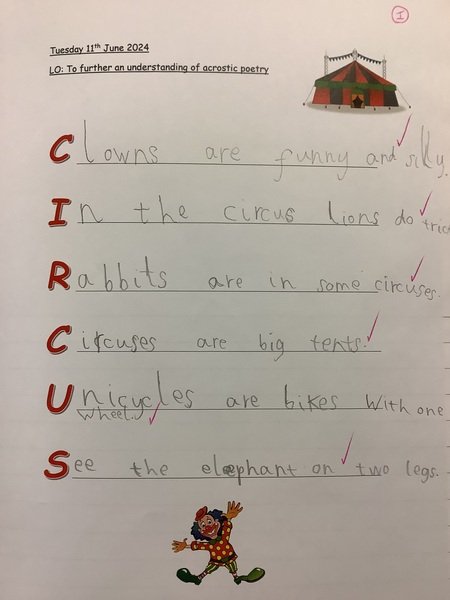 I
Tuesday 11th June 2024
LO: To further an understanding of acrostic poetry
Clowns are funny and silly.
In the circus lions do tric
Rabbits are in some circuses.
Circuses are big tents.
Unicycles are bikes with one
wheel.
See the elephant on two legs.